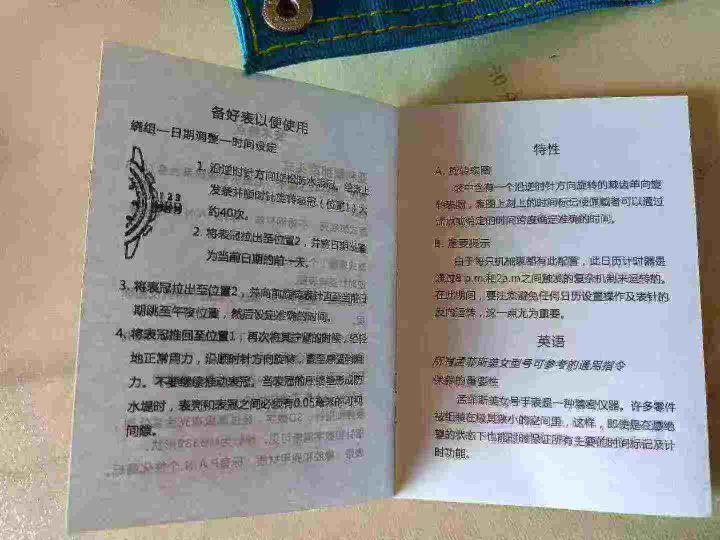 备好表以便使用
绕组—日期调整—时间设定
1. 沿逆时针方向
发条并顺时针旋转
约40次。
2. 将表冠拉出至位置2，并将日期
为当前日期的前一天。
3. 将表冠拉出至位置2，
期跳至午夜位置，然后设定准确的时间。
4. 将表冠推回至位置1，再次将其拧紧的时候，轻轻
地正常用力，沿顺时针方向旋转，直至感觉到阻
力。不要继续推动表冠。当表冠的压缩垫形成防
水堤时，表壳和表冠之间必须有0.05毫米的可视
间隙。
特性
A. 旋转表圈
表中含有一个沿逆时针方向旋转的棘齿单向旋
转表圈，表圈上刻上的时间标记使佩戴者可以通过
给定的时间跨度确定准确的时间。
B. 重要提示
由于每只机械表都有此配置，此日历计时器是
通过8 p.m.和2a.m之间触发的复杂机制来运转的。
在此期间，要注意避免任何日历设置操作及表针的
反向运转，这一点尤为重要。
英语
所有孟菲斯美女型号可参考的通用指令
保养的重要性
孟菲斯美女号手表是一种精密仪器。许多零件
被组装在极其狭小的空间里，这样，即使是在
的状态下也能时时保证所有主要的时间标记及计
时功能。